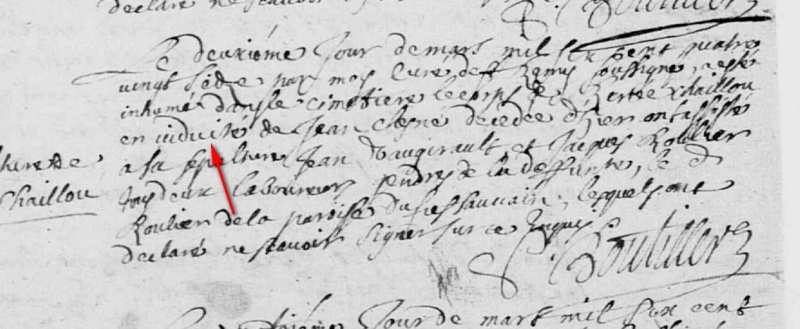 declaré ne scavoir
Boutiller
Le deuxiéme Jour de mars mil six cent quatre
vingt par moy Curé de St Remy soussigné, a esté
inhumé dans le cimetiere le corps de Berthe Chaillou
en viduité de Jean decedée d'hier ont assisté
a sa sepulture Jean Daugirault et Jacques Roulier
tous deux laboureurs gendres de la deffunte, le d
Roulier de la paroisse du fief sauvain, lesquels ont
declaré ne scavoir signer sur ce Enquis
Boutiller
Chaillou
Jour de mars mil six cent